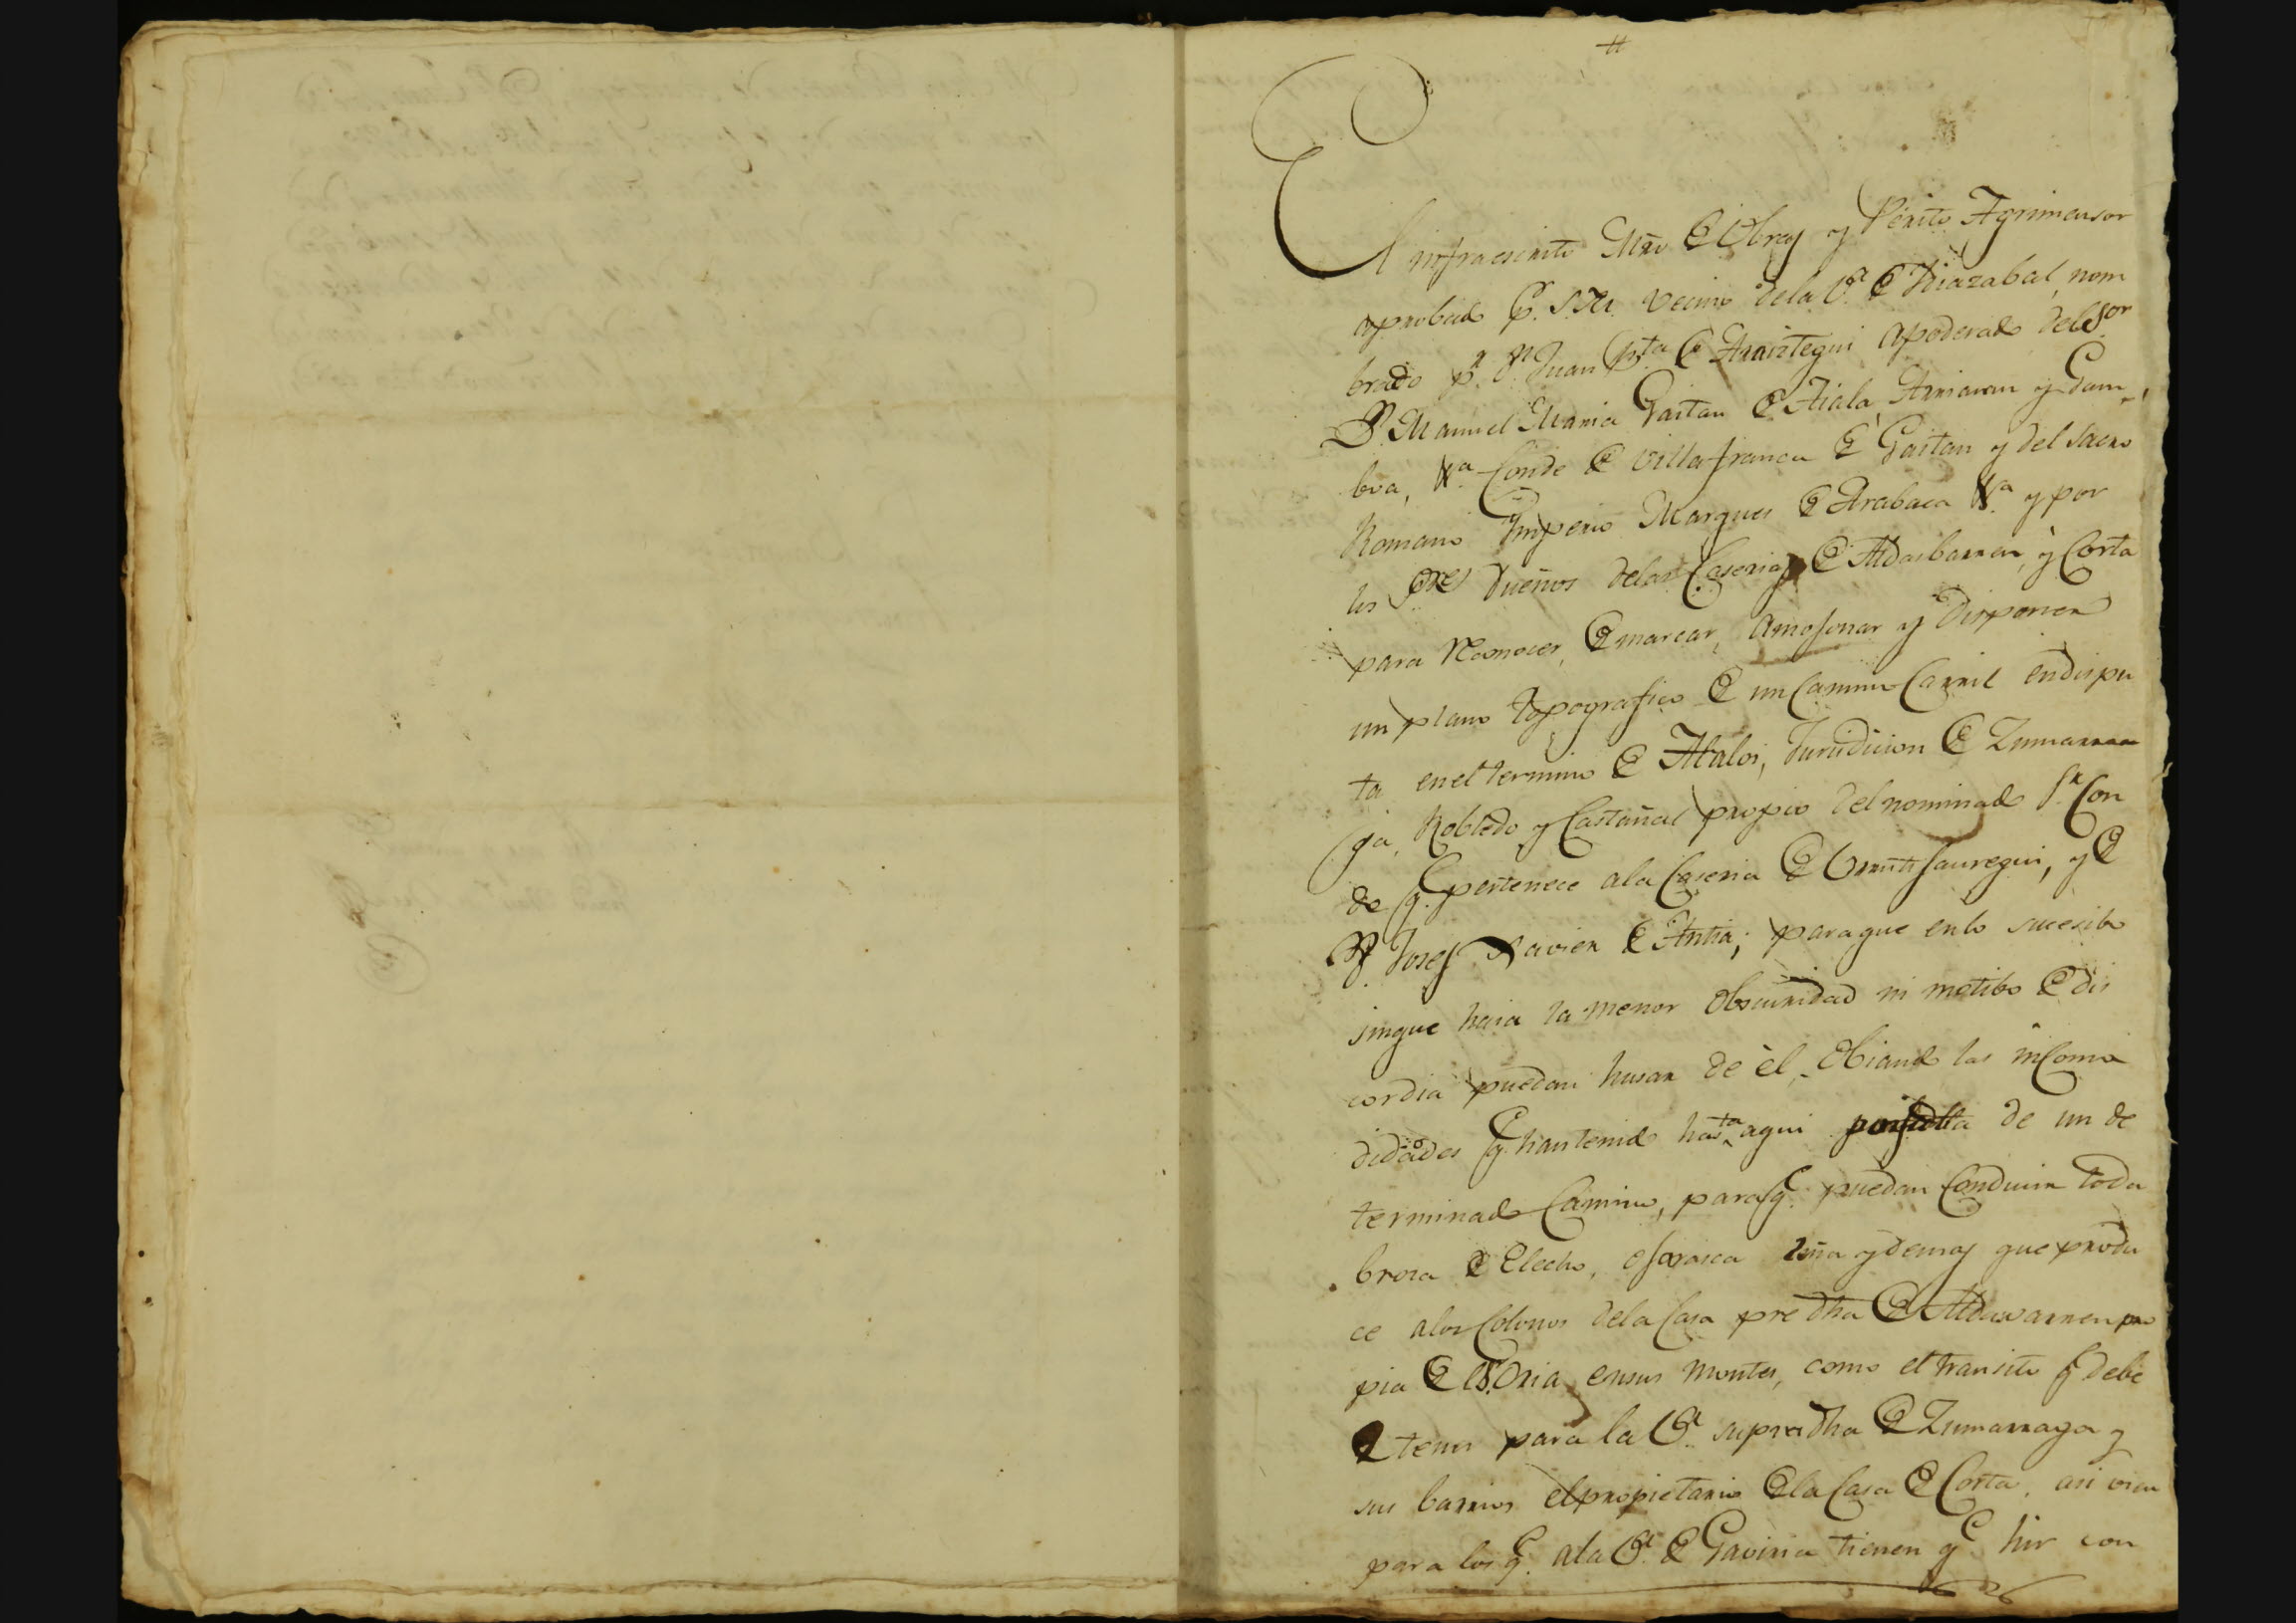 El infraescrito Mro de Obras y Périto Agrimensor
aprobado pr. S.M. vecino dela Va. de Idiazabal, nom
brado pr. Dn. Juan Bta. de Araiztegui apoderado del Sor
Dn. Manuel Maria Gaitan de Aiala, Arriaran y Gam-
boa, Xa. Conde de Villafranca de Gaitan y del Sacro
Romano Ymperio Marques de Arabaca Xa. y por
los Sres dueños delas Caserias de Aldasbarren, y Corta
para Reconocer, Demarcar, amojonar y Disponer
un plano topografico de un Camino Carril endispu
ta enel termino de Ataloi, Jurisdicion de Zumarra
ga, Robledo y Castañal propio del nominado Sr. Con
de qe. pertenece ala Caseria de Urrutijauregui, y de
Dn. Josef Xavier de Antia; paraque enlo sucesibo
sinque haia la menor Obscuridad ni motibo de dis
cordia puedan husar de èl, Obiando las incomo
didades qe. hantenido hasta aqui por falta de un de
terminado Camino, para qe. puedan Conducir toda
broza de Elecho, ojarasca leña y demas que produ
ce alos Colonos dela Casa predha de Aldasvarren pro
pia de V.S.Oria ensus montes, como el transito qe debe
tener para la Va. supradha de Zumarraga y
sus barrios elpropietario dela Casa de Corta, asi vien
para los qe. ala Va. de Gaviria tienen qe hir con